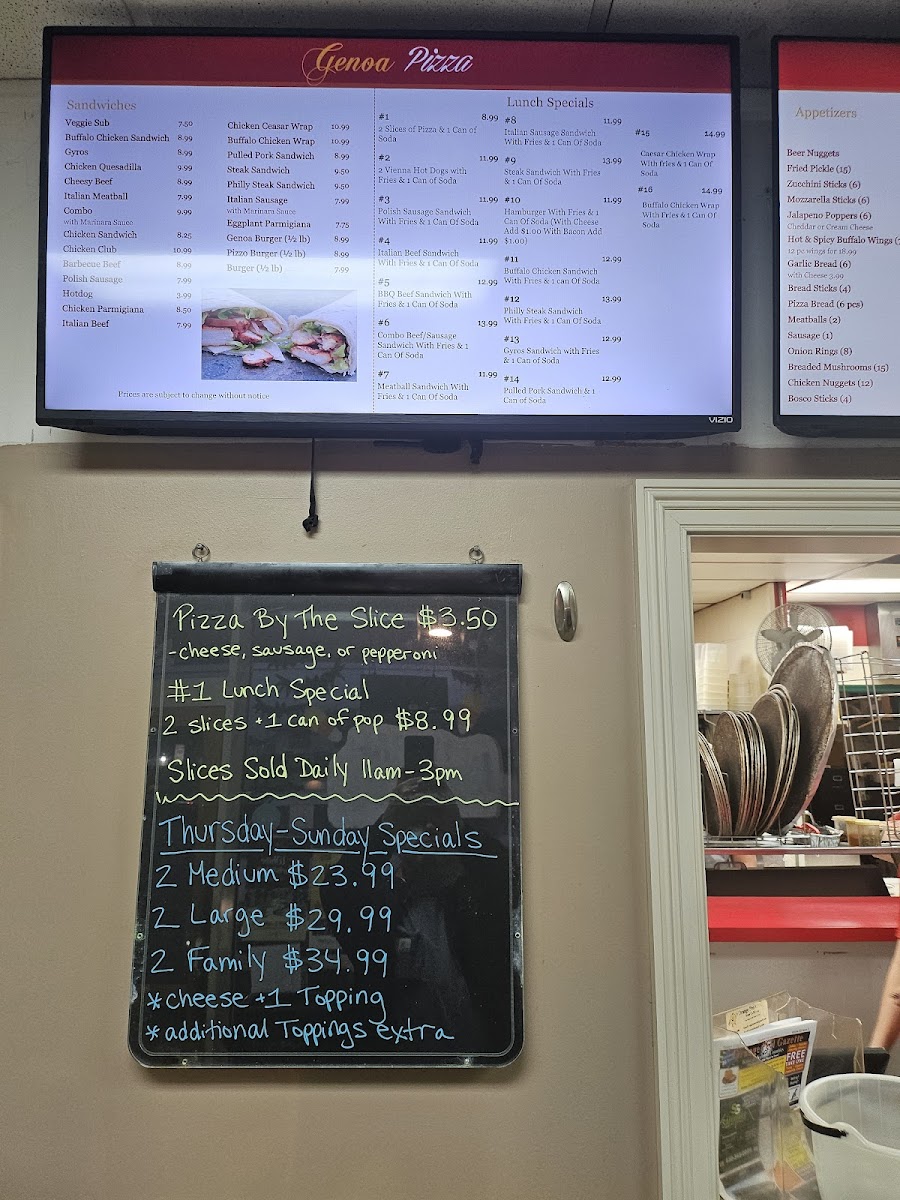 Genoa Pizza
Sandwiches
Veggie Sub 7.50
Buffalo Chicken Sandwich 8.99
Gyros 8.99
Chicken Quesadilla 9.99
Cheesy Beef 8.99
Italian Meatball 7.99
Combo 9.99
with Marinara Sauce
Chicken Sandwich 8.25
Chicken Club 10.99
Barbecue Beef 8.99
Polish Sausage 7.99
Hotdog 3.99
Chicken Parmigiana 8.50
Italian Beef 7.99
Chicken Ceasar Wrap 10.99
Buffalo Chicken Wrap 10.99
Pulled Pork Sandwich 8.99
Steak Sandwich 9.50
Philly Steak Sandwich 9.50
Italian Sausage 7.99
with Marinara Sauce
Eggplant Parmigiana 7.75
Genoa Burger (½ lb) 8.99
Pizzo Burger (½ lb) 8.99
Burger (½ lb) 7.99
Prices are subject to change without notice
Lunch Specials
#1 8.99
2 Slices of Pizza & 1 Can of
Soda
#2 11.99
2 Vienna Hot Dogs with
Fries & 1 Can of Soda
#3 11.99
Polish Sausage Sandwich
With Fries & 1 Can Of Soda
#4 11.99
Italian Beef Sandwich
With Fries & 1 Can Of Soda
#5 12.99
BBQ Beef Sandwich With
Fries & 1 Can Of Soda
#6 13.99
Combo Beef/Sausage
Sandwich With Fries & 1
Can Of Soda
#7 11.99
Meatball Sandwich With
Fries & 1 Can of Soda
#8 11.99
Italian Sausage Sandwich
With Fries & 1 Can Of Soda
#9 13.99
Steak Sandwich With Fries
& 1 Can Of Soda
#10 11.99
Hamburger With Fries & 1
Can Of Soda (With Cheese
Add $1.00 With Bacon Add
$1.00)
#11 12.99
Buffalo Chicken Sandwich
With Fries & 1 Can Of Soda
#12 13.99
Philly Steak Sandwich
With Fries & 1 Can Of Soda
#13 12.99
Gyros Sandwich with Fries
& 1 Can of Soda
#14 12.99
Pulled Pork Sandwich & 1
Can of Soda
#15 14.99
Caesar Chicken Wrap
With fries & 1 Can Of
Soda
#16 14.99
Buffalo Chicken Wrap
With Fries & 1 Can Of
Soda
VIZIO
Appetizers
Beer Nuggets
Fried Pickle (15)
Zucchini Sticks (6)
Mozzarella Sticks (6)
Jalapeno Poppers (6)
Cheddar or Cream Cheese
Hot & Spicy Buffalo Wings
12 pc wings for 18.99
Garlic Bread (6)
with Cheese 3.99
Bread Sticks (4)
Pizza Bread (6 pcs)
Meatballs (2)
Sausage (1)
Onion Rings (8)
Breaded Mushrooms (15)
Chicken Nuggets (12)
Bosco Sticks (4)
Pizza By The Slice $3.50
-cheese, sausage, or pepperoni
#1 Lunch Special
2 slices + 1 can of pop $8.99
Slices Sold Daily 11am-3pm
Thursday-Sunday Specials
2 Medium $23.99
2 Large $29.99
2 Family $34.99
*cheese +1 Topping
*additional Toppings extra
Gazette
FREE